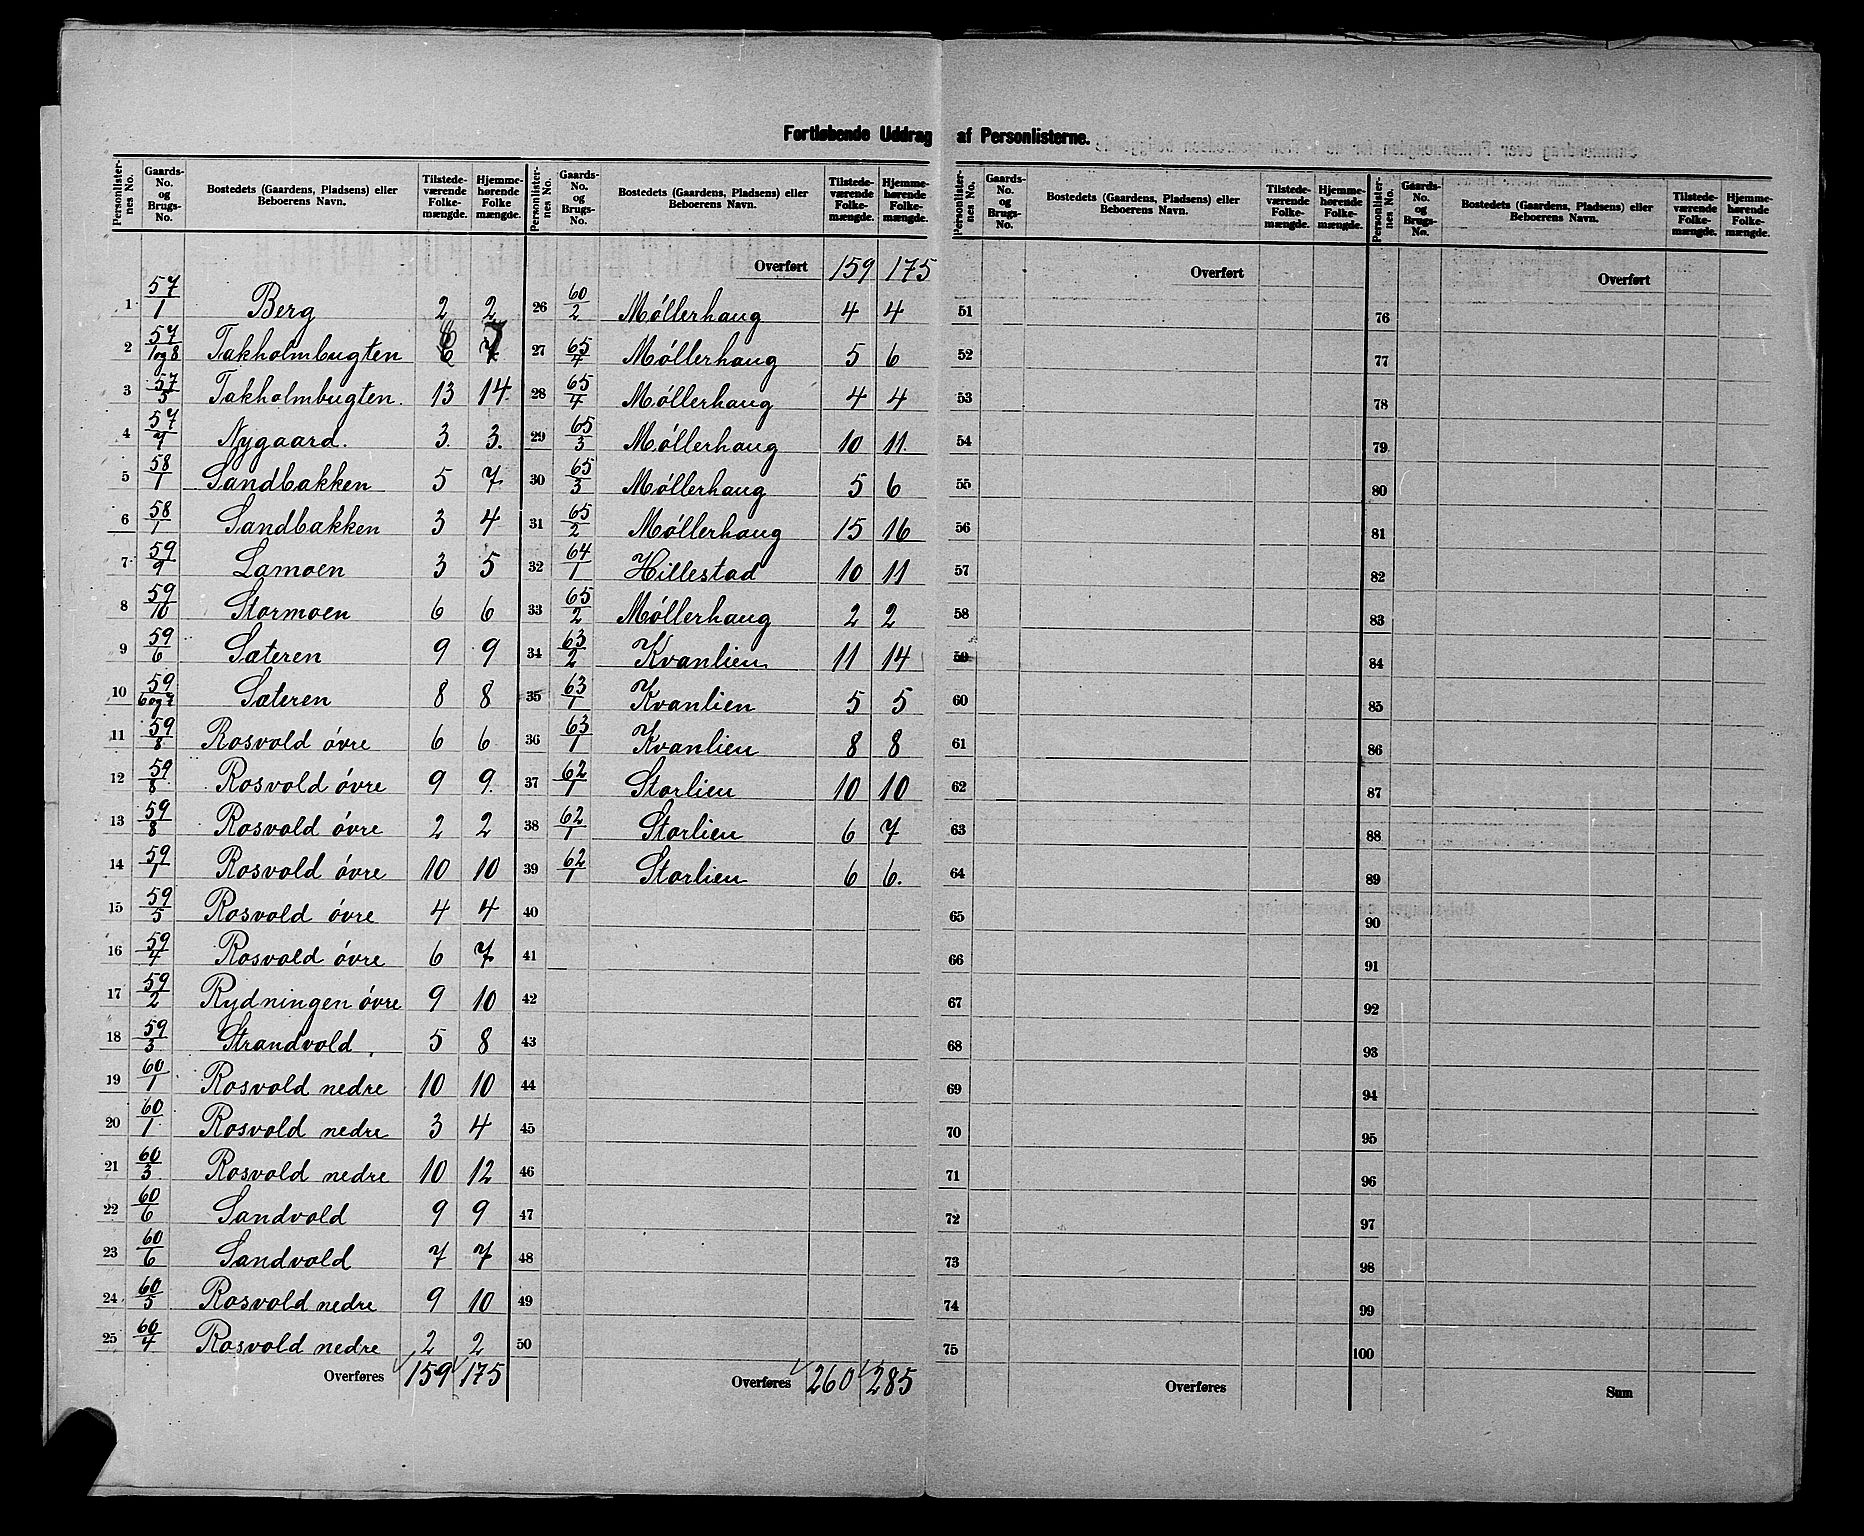 Fortløbende Uddrag af Personlisterne.
Personlister-nes No. Gaards-No. og Brugs-No. Bostedets (Gaardens, Pladsens) eller Beboerens Navn. Tilstede-værende Folke-mængde. Hjemme-hørende Folke mængde.
1 57/1 Berg 2 2
2 57/1og8 Takholmbugten 6 7
3 57/5 Takholmbugten. 13 14
4 57/7 Nygaard. 3. 3.
5 58/1 Sandbakken 5 7
6 58/1 Sandbakken 3 4
7 59/9 Lamoen 3 5
8 59/10 Stormoen 6 6
9 59/6 Sæteren 9 9
10 59/6og7 Sæteren 8 8
11 59/8 Rosvold øvre 6 6
12 59/8 Rosvold øvre 9 9.
13 59/8 Rosvold øvre 2 2
14 59/1 Rosvold øvre 10 10
15 59/5 Rosvold øvre 4 4
16 59/4 Rosvold øvre 6 7
17 59/2 Rydningen øvre 9 10
18 59/3 Strandvold. 5 8
19 60/1 Rosvold nedre 10 10
20 60/1 Rosvold nedre 3 4
21 60/3 Rosvold nedre 10 12
22 60/6 Sandvold 9 9
23 60/6 Sandvold 7 7
24 60/5 Rosvold nedre 9 10
25 60/4 Rosvold nedre 2 2
Overføres 159 175
Personlister-nes No. Gaards-No. og Brugs-No. Bostedets (Gaardens, Pladsens) eller Beboerens Navn. Tilstede-værende Folke-mængde. Hjemme-hørende Folke-mængde.
Overført 159 175
26 60/2 Møllerhaug 4 4
27 65/4 Møllerhaug 5 6
28 65/4 Møllerhaug 4 4
29 65/3 Møllerhaug 10 11.
30 65/3 Møllerhaug 5 6
31 65/2 Møllerhaug 15 16
32 64/1 Hillestad 10 11
33 65/2 Møllerhaug 2 2
34 63/2 Kvanlien 11 14
35 63/1 Kvanlien 5 5
36 63/1 Kvanlien 8 8
37 62/1 Storlien 10 10
38 62/1 Storlien 6 7
39 62/1 Storlien 6 6.
40
41
42
43
44
45
46
47
48
49
50
Overføres 260 285
Personlister-nes No. Gaards-No. og Brugs-No. Bostedets (Gaardens, Pladsens) eller Beboerens Navn. Tilstede-værende Folke-mængde. Hjemme-hørende Folke-mængde.
Overført
51
52
53
54
55
56
57
58
59
60
61
62
63
64
65
66
67
68
69
70
71
72
73
74
75
Overføres
Personlister-nes No. Gaards-No. og Brugs-No. Bostedets (Gaardens, Pladsens) eller Beboerens Navn. Tilstede-værende Folke-mængde. Hjemme-hørende Folke-mængde.
Overført
76
77
78
79
80
81
82
83
84
85
86
87
88
89
90
91
92
93
94
95
96
97
98
99
100
Sum